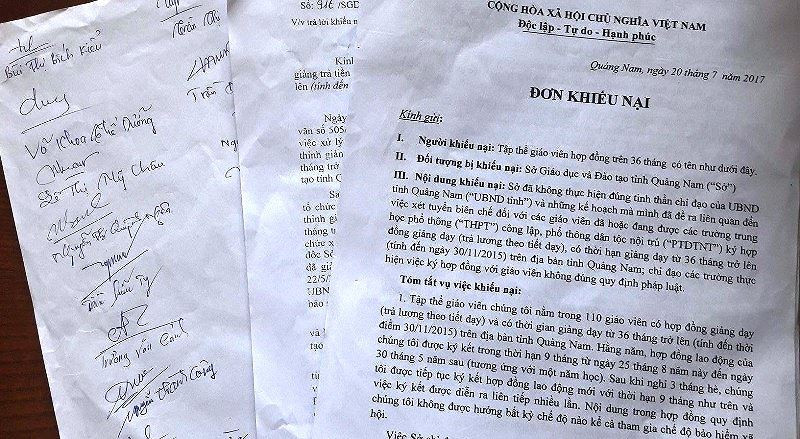 Bùi Thị Bích Kiều
Duy
Võ Khoa Thế Dưỡng
Thị Mỹ Châu
Trương Văn
Số: 916 /SGD
V/v trả lời khiếu n
Kính
giảng trả tiền
lên (tính đến
Ngày
văn số 505/
việc xử lý
thỉnh giản
tháng trở
tạo tỉnh Q
tổ chức
thỉnh gi
tháng t
chức x
độc Sở
đã giả
22/5/
UBN
báo
và
tạo
CỘNG HÒA XÃ HỘI CHỦ NGHĨA VIỆT NAM
Độc lập - Tự do - Hạnh phúc
Quảng Nam, ngày 20 tháng 7 năm 2017
ĐƠN KHIẾU NẠI
Kính gửi:
I. Người khiếu nại: Tập thể giáo viên hợp đồng trên 36 tháng có tên như dưới đây.
II. Đối tượng bị khiếu nại: Sở Giáo dục và Đào tạo tỉnh Quảng Nam ("Sở")
III. Nội dung khiếu nại: Sở đã không thực hiện đúng tinh thần chỉ đạo của UBND
tỉnh Quảng Nam ("UBND tỉnh") và những kế hoạch mà mình đã đề ra liên quan đến
việc xét tuyển biên chế đối với các giáo viên đã hoặc đang được các trường trung
học phổ thông ("THPT") công lập, phổ thông dân tộc nội trú ("PTDTNT") ký hợp
đồng giảng dạy (trả lương theo tiết dạy), có thời hạn giảng dạy từ 36 tháng trở lên
(tính đến ngày 30/11/2015) trên địa bàn tỉnh Quảng Nam; chỉ đạo các trường thực
hiện việc ký hợp đồng với giáo viên không đúng quy định pháp luật.
Tóm tắt vụ việc khiếu nại:
1. Tập thể giáo viên chúng tôi nằm trong 110 giáo viên có hợp đồng giảng dạy
(trả lương theo tiết dạy) và có thời gian giảng dạy từ 36 tháng trở lên (tính đến thời
điểm 30/11/2015) trên địa bàn tỉnh Quảng Nam. Hàng năm, hợp đồng lao động của
chúng tôi được ký kết trong thời hạn 9 tháng từ ngày 25 tháng 8 năm này đến ngày
30 tháng 5 năm sau (tương ứng với một năm học). Sau khi nghỉ 3 tháng hè, chúng
tôi được tiếp tục ký kết hợp đồng lao động mới với thời hạn 9 tháng như trên và
việc ký kết được diễn ra liên tiếp nhiều lần. Nội dung trong hợp đồng quy định
chúng tôi không được hưởng bất kỳ chế độ nào kể cả tham gia chế độ bảo hiểm xã
hội.